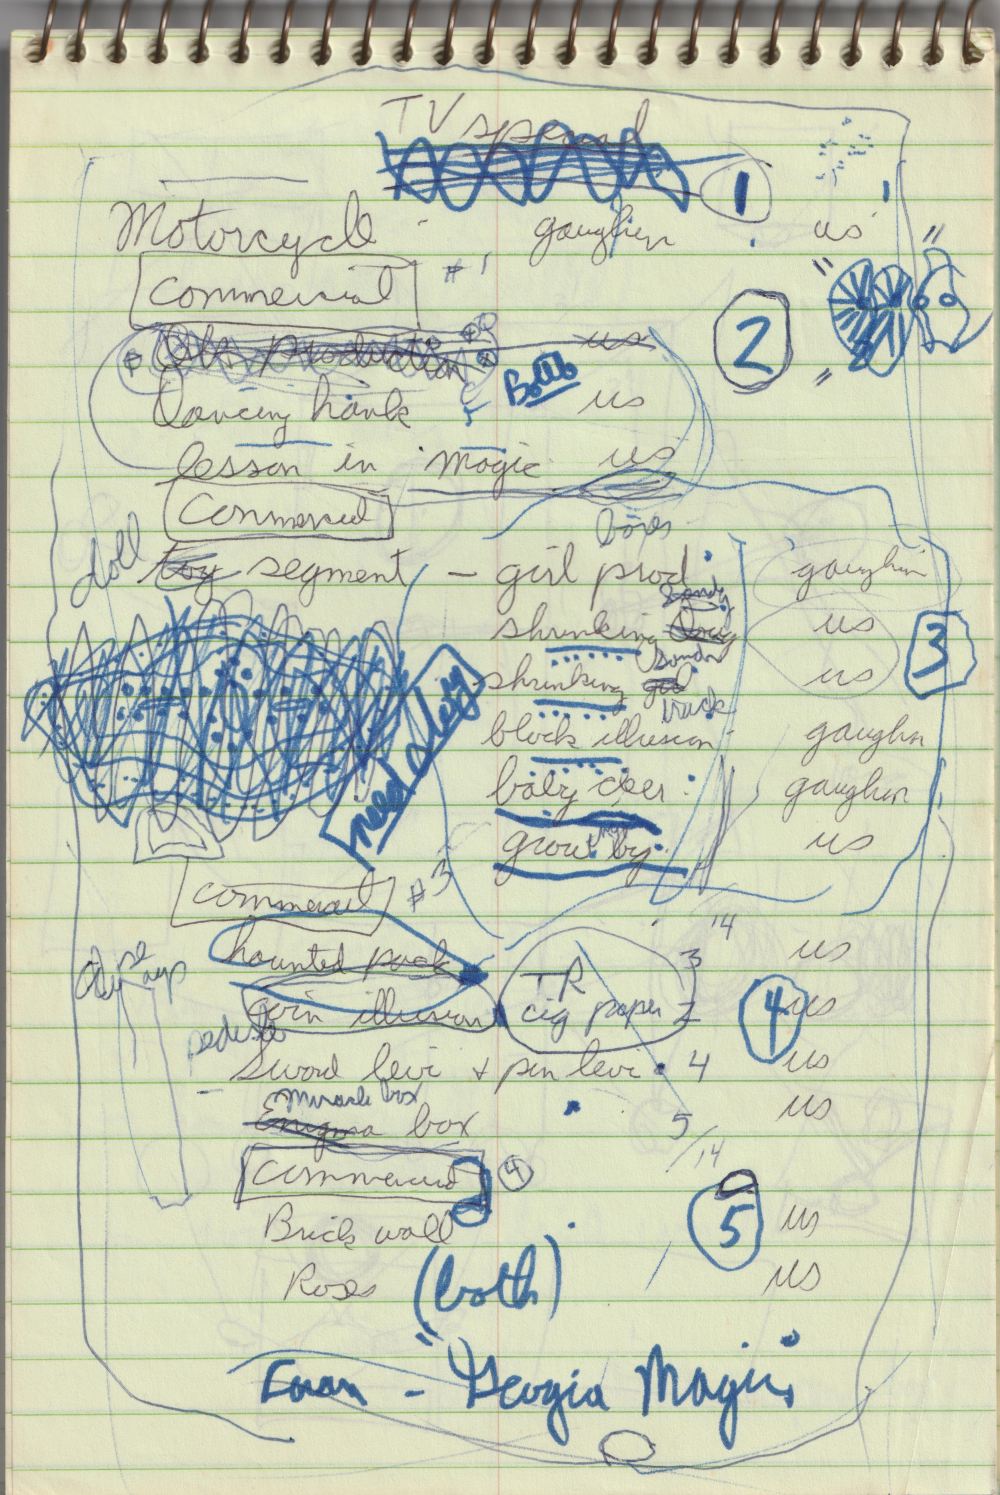 TV special
1
Motorcycle - gaughen us
commercial #1
2
production us
Dancing hank 5 Balls us
lesson in magic us
commercial
boxes
doll toy segment - girl prod gaughen
Sandy
shrinking Doug us
3
Sandy
shrinking girl us
truck
block illusion gaughn
baby gaughen
grow us
need
commercial #3
14
haunted pack 3 us
TR
coin illusion cig paper 2 us
4
Sword levi + pin levi 4 us
Miracle box
Enigma box 5 us
/14
commercial 4
Brick wall 5 us
Roses us
(both)
- "Georgia Magic"